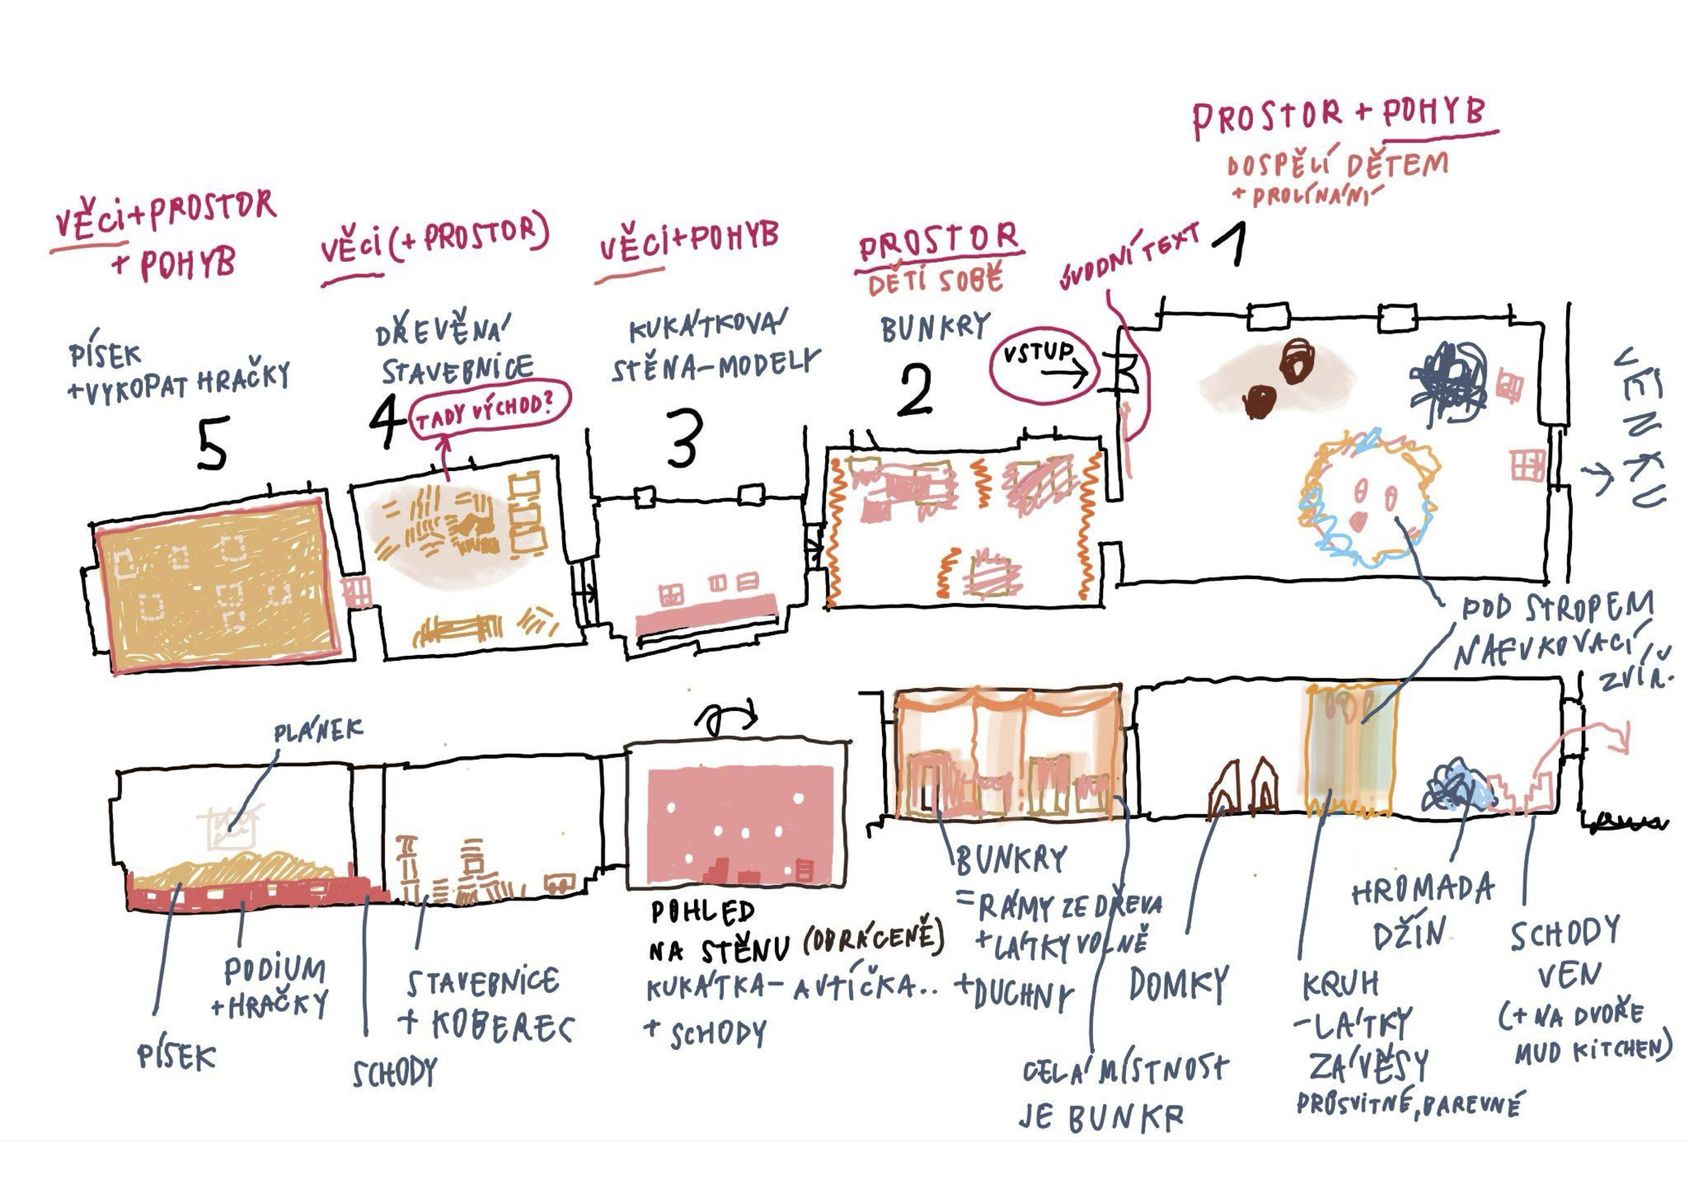 PROSTOR + POHYB
DOSPĚLÍ DĚTEM
+ PROLÍNÁNÍ
1
VĚCI + PROSTOR
+ POHYB
PÍSEK
+ VYKOPAT HRAČKY
5
VĚCI (+ PROSTOR)
DŘEVĚNÁ
STAVEBNICE
4
TADY VÝCHOD?
VĚCI + POHYB
KUKÁTKOVÁ
STĚNA - MODELY
3
PROSTOR
DĚTI SOBĚ
BUNKRY
2
ÚVODNÍ TEXT
VSTUP
VENKU
POD STROPEM
NAFUKOVACÍ
ZVÍŘ.
PLÁNEK
PÍSEK
PODIUM
+ HRAČKY
SCHODY
STAVEBNICE
+ KOBEREC
POHLED
NA STĚNU (OBRÁCENĚ)
KUKÁTKA - AUTÍČKA..
+ SCHODY
BUNKRY
= RÁMY ZE DŘEVA
+ LÁTKY VOLNĚ
+ DUCHNY
CELÁ MÍSTNOST
JE BUNKR
DOMKY
KRUH
- LÁTKY
ZÁVĚSY
PRŮSVITNÉ, BAREVNÉ
HROMADA
DŽÍN
SCHODY
VEN
(+ NA DVOŘE
MUD KITCHEN)